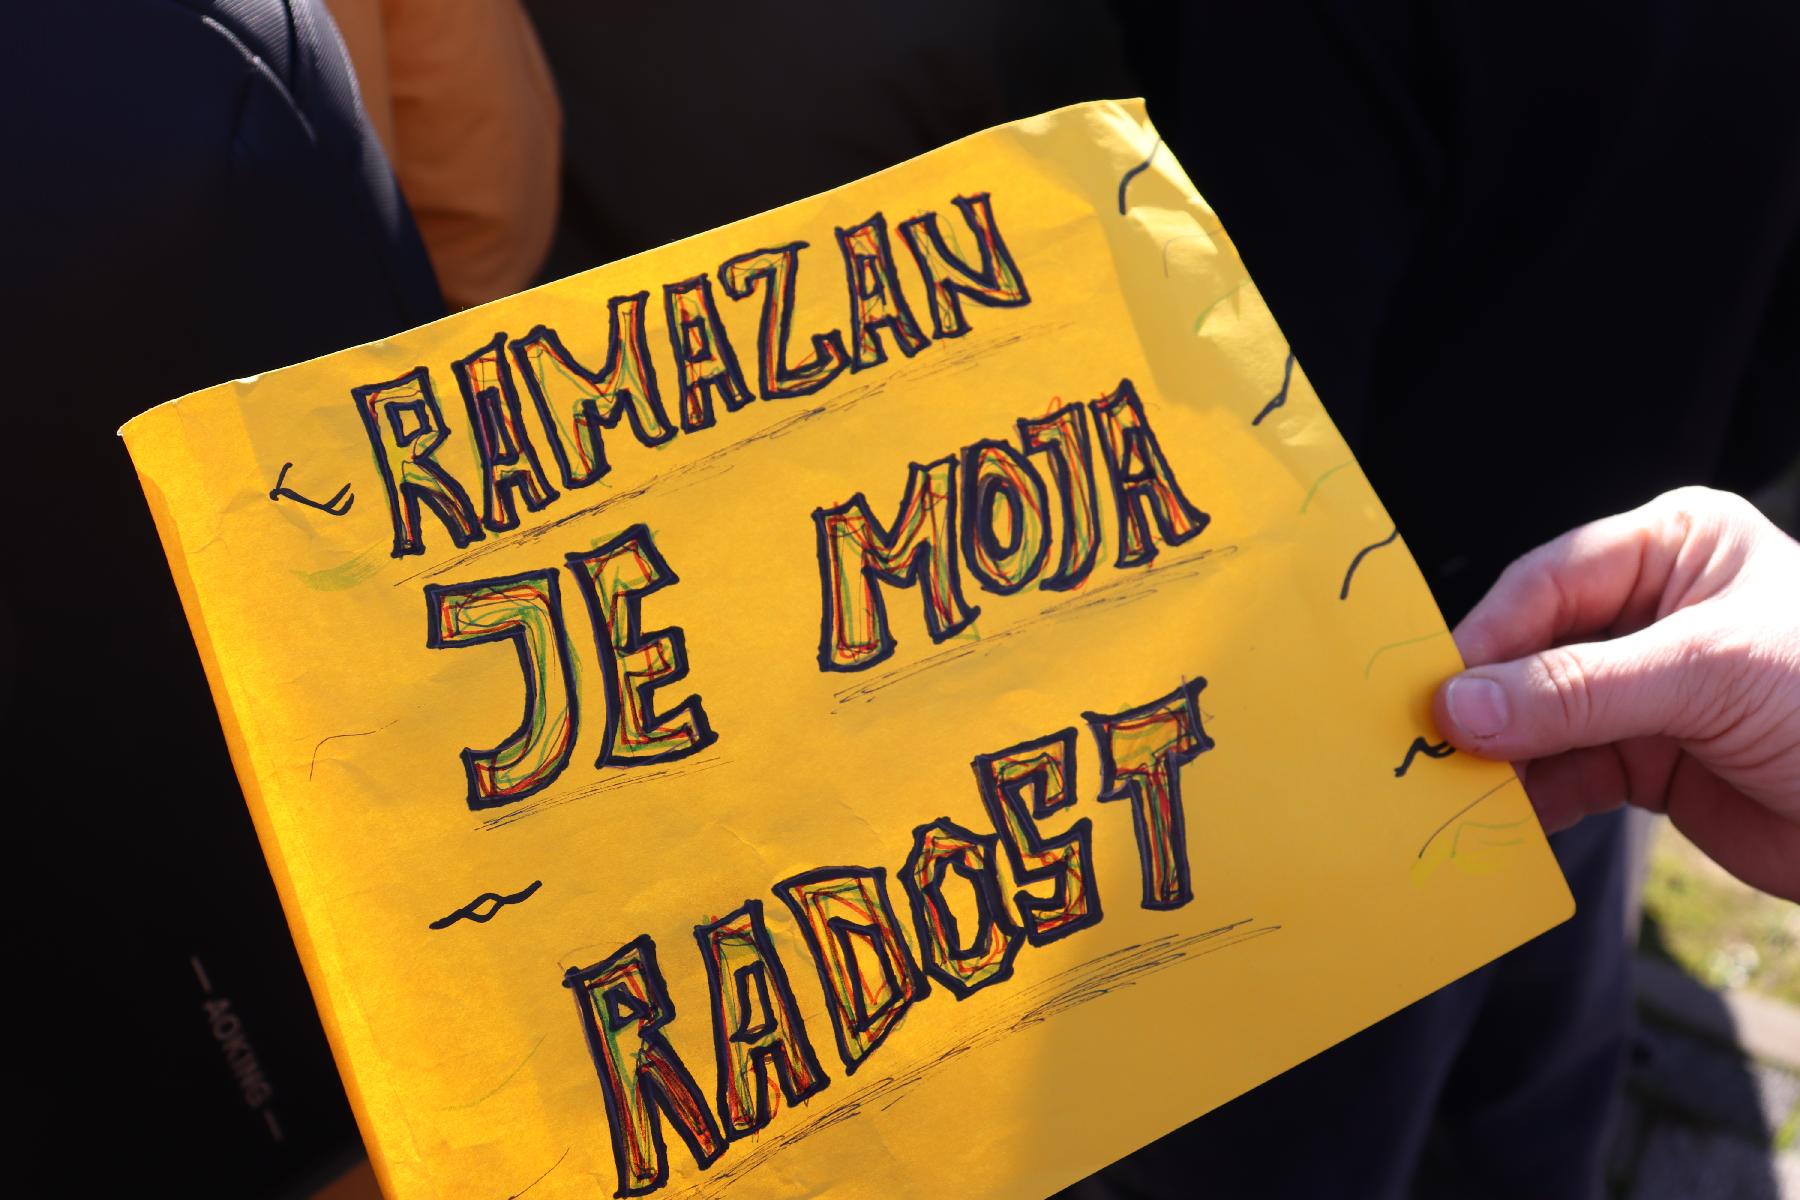 RAMAZAN
JE MOJA
RADOST
— AOKING —